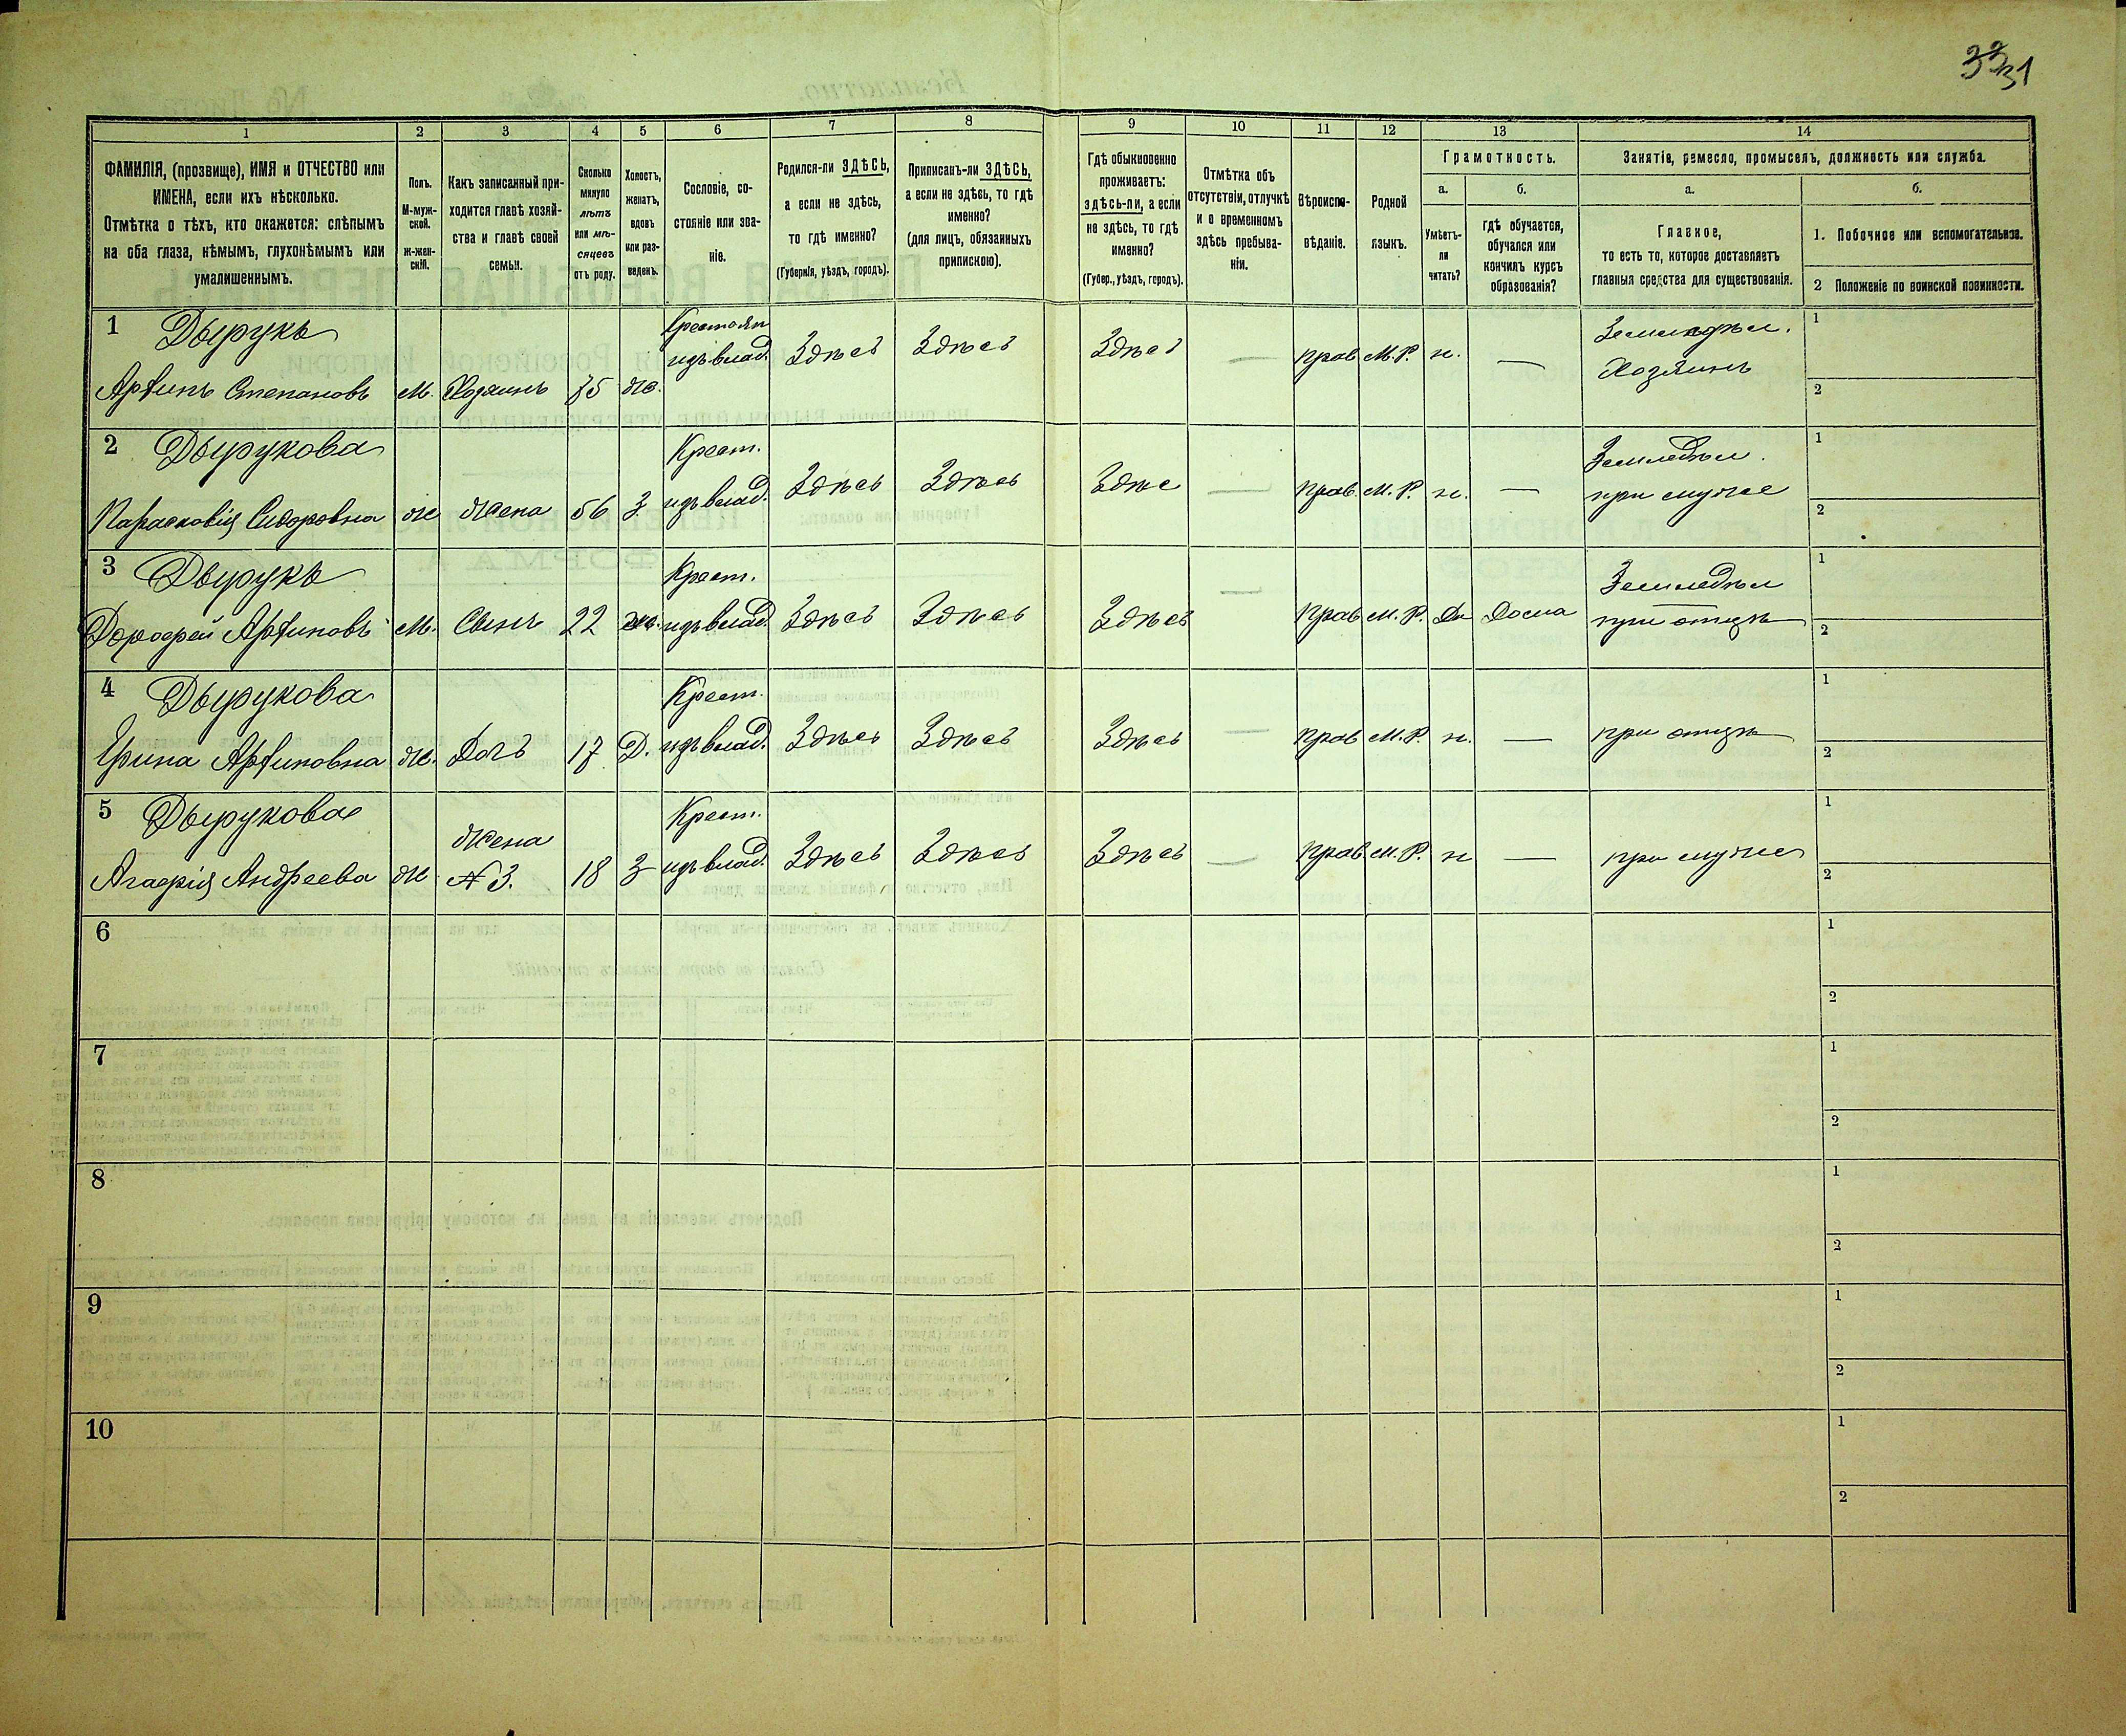 33 31
1 2 3 4 5 6 7 8 9 10 11 12 13 14
ФАМИЛІЯ, (прозвище), ИМЯ и ОТЧЕСТВО или
ИМЕНА, если ихъ нѣсколько.
Отмѣтка о тѣхъ, кто окажется: слѣпымъ
на оба глаза, нѣмымъ, глухонѣмымъ или
умалишеннымъ.
Полъ.
М-муж-
ской.
Ж-жен-
скій.
Какъ записанный при-
ходится главѣ хозяй-
ства и главѣ своей
семьи.
Сколько
минуло
лѣтъ
или мѣ-
сяцевъ
отъ роду.
Холостъ,
женатъ,
вдовъ
или раз-
веденъ.
Сословіе, со-
стояніе или зва-
ніе.
Родился-ли ЗДѢСЬ,
а если не здѣсь,
то гдѣ именно?
(Губернія, уѣздъ, городъ).
Приписанъ-ли ЗДѢСЬ,
а если не здѣсь, то гдѣ
именно?
(для лицъ, обязанныхъ
припискою).
Гдѣ обыкновенно
проживаетъ:
здѣсь-ли, а если
не здѣсь, то гдѣ
именно?
(Губер., уѣздъ, городъ).
Отмѣтка объ
отсутствіи, отлучкѣ
и о временномъ
здѣсь пребыва-
ніи.
Вѣроиспо-
вѣданіе.
Родной
языкъ.
Грамотность.
а.
Умѣетъ-
ли
читать?
б.
гдѣ обучается,
обучался или
кончилъ курсъ
образованія?
Занятіе, ремесло, промыселъ, должность или служба.
а.
Главное,
то есть то, которое доставляетъ
главныя средства для существованія.
б.
1. Побочное или вспомогательное.
2 Положеніе по воинской повинности.
1 Дырукъ Крестьян Земледѣл. 1
идъ влад. Здѣсь Здѣсь Здѣсь — прав М.Р. н. — Хозяинъ
Арѳипъ Степановъ М. Хозяинъ 75 ж. 2
2 Дырукова Крест. Земледѣл. 1
Парасковія Сидоровна Ж Жена 56 З. Здѣсь Здѣсь Здѣс — прав. М.Р. н. — при мужѣ 2
3 Дырукъ Крест. Земледѣл 1
Дороѳей Арѳиповъ М. Сынъ 22 ж. Здѣсь Здѣсь Здѣсь — прав М.Р. Да Дома при отцѣ 2
4 Дырукова Крест. 1
Ирина Арѳиповна Ж. Дочь 17 Д. Здѣсь Здѣсь Здѣсь — прав М.Р. н. — при отцѣ 2
5 Дырукова Крест. 1
Жена
Агафія Андреева Ж № 3. 18 З Здѣсь Здѣсь Здѣсь — прав. М.Р. н — при мужѣ 2
6 1
2
7 1
2
8 1
2
9 1
2
10 1
2